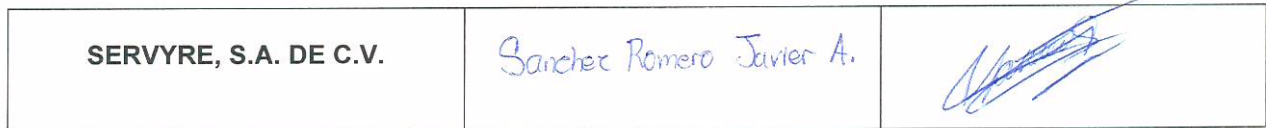 SERVYRE, S.A. DE C.V.
Sanchez Romero Javier A.